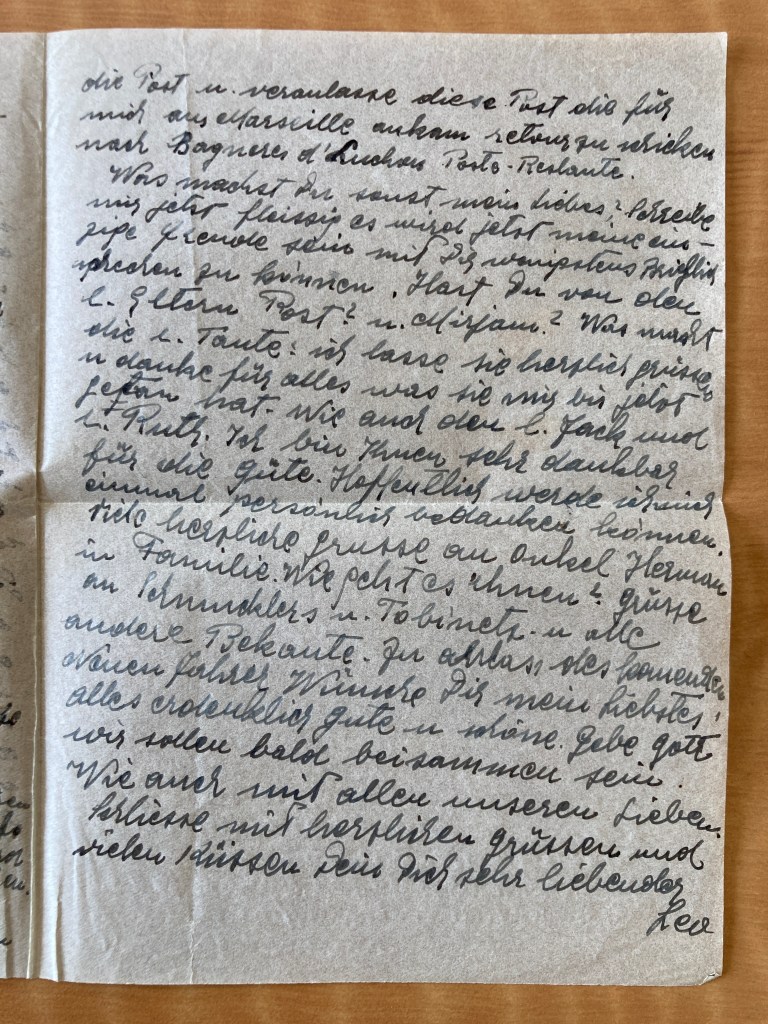 die Post u. veranlasse diese Post die für
mich aus Marseille ankam retour zu schicken
nach Bagneres d'Luchon Poste-Restante.
Was machst Du sonst mein Liebes? Schreibe
mir jetzt fleissig es wird jetzt meine ein-
zige Freude sein mit Dir wenigstens brieflich
sprechen zu können. Hast Du von den
l. Eltern Post? u. Mirjam? Was macht
die l. Tante? ich lasse sie herzlich grüssen
u danke für alles was sie mir bis jetzt
getan hat. Wie auch den l. Jack und
l. Ruth. Ich bin Ihnen sehr dankbar
für die güte. Hoffentlich werde ich mich
einmal persönlich bedanken können.
Viele herzliche grüsse an Onkel Herman
u Familie. Wie geht es ihnen? grüsse
an u. u alle
andere Bekante. Zu anlass des komenden
Neuen Jahres Wünsche Dir mein Liebstes,
alles erdenklich gute u schöne. Gebe Gott
wir sollen bald beisammen sein.
Wie auch mit allen unseren Lieben.
Schliesse mit herzlichen grüssen und
vielen Küssen Dein Dich sehr liebender
Leo